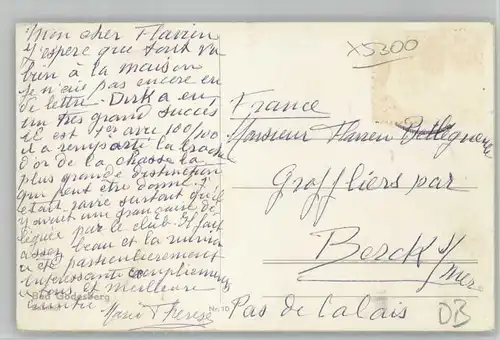 Mon cher Flavien
J'espere que tout va
bien à la maison
Je n'ai pas encore eu
de lettre. Dirka eu
un tres grand succès
il est 1er avec 100/100
il a remporté la broche
d'or de la chasse la
plus grande distinction
qui peut être donné. J'
etait ravie surtout qu'il
y avait une française dé-
léguée par le club. Il fait
assez beau et la
a été particulierement
interessante compliments
a tous et meilleure
amitié
Marie Thérèse
Bad Godesberg
Nr. 10
X5300
France
Monsieur Flavien
Groffliers par
Berck s/
mer
Pas de Calais
DB